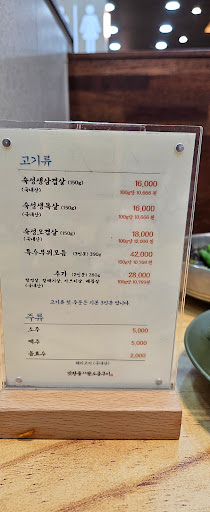 고기류
숙성생삼겹살 (150g) 16,000
(국내산) 100g당 10,666 원
숙성생목살 (150g) 16,000
(국내산) 100g당 10,666 원
숙성오겹살 (150g) 18,000
(국내산) 100g당 12,000 원
특수부위모듬 (3인분) 390g 42,000
추가 (2인분) 260g 28,000
(국내산)
고기류 첫 주문은 기본 3인분 입니다
주류
소주 5,000
맥주 5,000
음료수 2,000